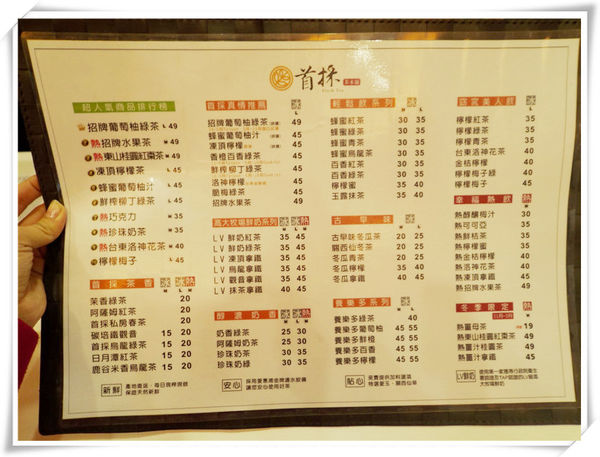 首採
超人氣商品排行榜
招牌葡萄柚綠茶 L 49
熱招牌水果茶 M 49
熱東山桂圓紅棗茶 M 49
凍頂檸檬茶 L 45
蜂蜜葡萄柚汁 L 45
鮮榨柳丁綠茶 L 45
熱巧克力 M 35
熱珍珠奶茶 M 35
熱台東洛神花茶 M 40
檸檬梅子 L 50
首採茶香 冰 冰 熱
M L M
茉香綠茶 20
阿薩姆紅茶 20
首採私房春茶 20
碳培鐵觀音 15 20 20
首採烏龍綠茶 15 20 20
日月潭紅茶 15 20 20
鹿谷米香烏龍茶 15 20 20
新鮮
首採真情推薦 冰
L
招牌葡萄柚綠茶 49
蜂蜜葡萄柚汁 45
凍頂檸檬茶 45
香橙百香綠茶 45
鮮榨柳丁綠茶 45
洛神檸檬 45
脆梅綠茶 35
招牌水果茶 49
高大牧場鮮奶系列 冰 冰 熱
M L M
LV鮮奶紅茶 35 45
LV鮮奶綠茶 35 45
LV凍頂拿鐵 35 45
LV烏龍拿鐵 35 45
LV觀音拿鐵 35 45
LV抹茶拿鐵 35 45
醇濃奶香 冰 冰 熱
M L M
奶香綠茶 25 30
阿薩姆奶茶 25 30
珍珠奶茶 25 30
珍珠奶綠 25 30
安心
讓您安心使用好茶
輕鬆飲系列 冰 冰
M L
蜂蜜紅茶 30 35
蜂蜜綠茶 30 35
蜂蜜青茶 30 35
蜂蜜烏龍茶 30 35
百香紅茶 30 35
百香綠茶 30 35
檸檬蜜 35 40
玉露抹茶 35 40
古早味 冰 冰
M L
古早味冬瓜茶 20 25
關西仙冬茶 20 25
冬瓜青茶 20 25
冬瓜檸檬 35 40
冬瓜拿鐵 35 45
養樂多系列 冰 冰
M L
養樂多綠茶 35 40
養樂多葡萄柚 45 55
養樂多鮮橙 45 55
養樂多百香 45 55
養樂多檸檬 45 55
貼心
免費提供加料選項
冰
L
檸檬紅茶 35
檸檬綠茶 35
檸檬青茶 35
台東洛神花茶 40
金桔檸檬 40
檸檬梅子綠 40
檸檬梅子 50
幸福熱飲 熱
M
熱鮮釀梅汁 30
熱可可亞 35
熱鮮桔茶 35
熱檸檬蜜 35
熱金桔檸檬 40
熱洛神花茶 40
熱凍頂拿鐵 45
熱招牌水果茶 49
冬季限定 熱
M
熱薑母茶 19
熱東山桂圓紅棗茶 49
熱薑汁桂圓茶 49
熱薑汁拿鐵 45
LV鮮奶
大牧場鮮奶